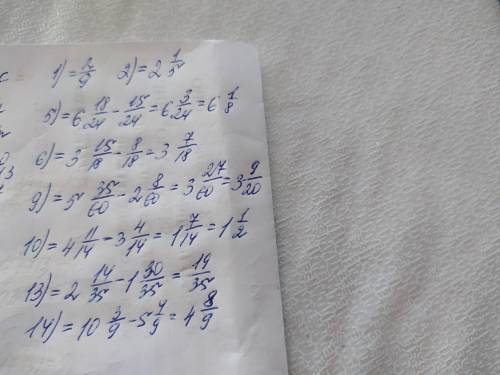 1) = 2/9   2) = 2 1/5
5) = 6 18/24 - 15/24 = 6 3/24 = 6 1/8
6) = 3 15/18 - 8/18 = 3 7/18
9) = 5 35/60 - 2 8/60 = 3 27/60 = 3 9/20
10) = 4 11/14 - 3 4/14 = 1 7/14 = 1 1/2
13) = 2 14/35 - 1 30/35 = 19/35
14) = 10 3/9 - 5 4/9 = 4 8/9